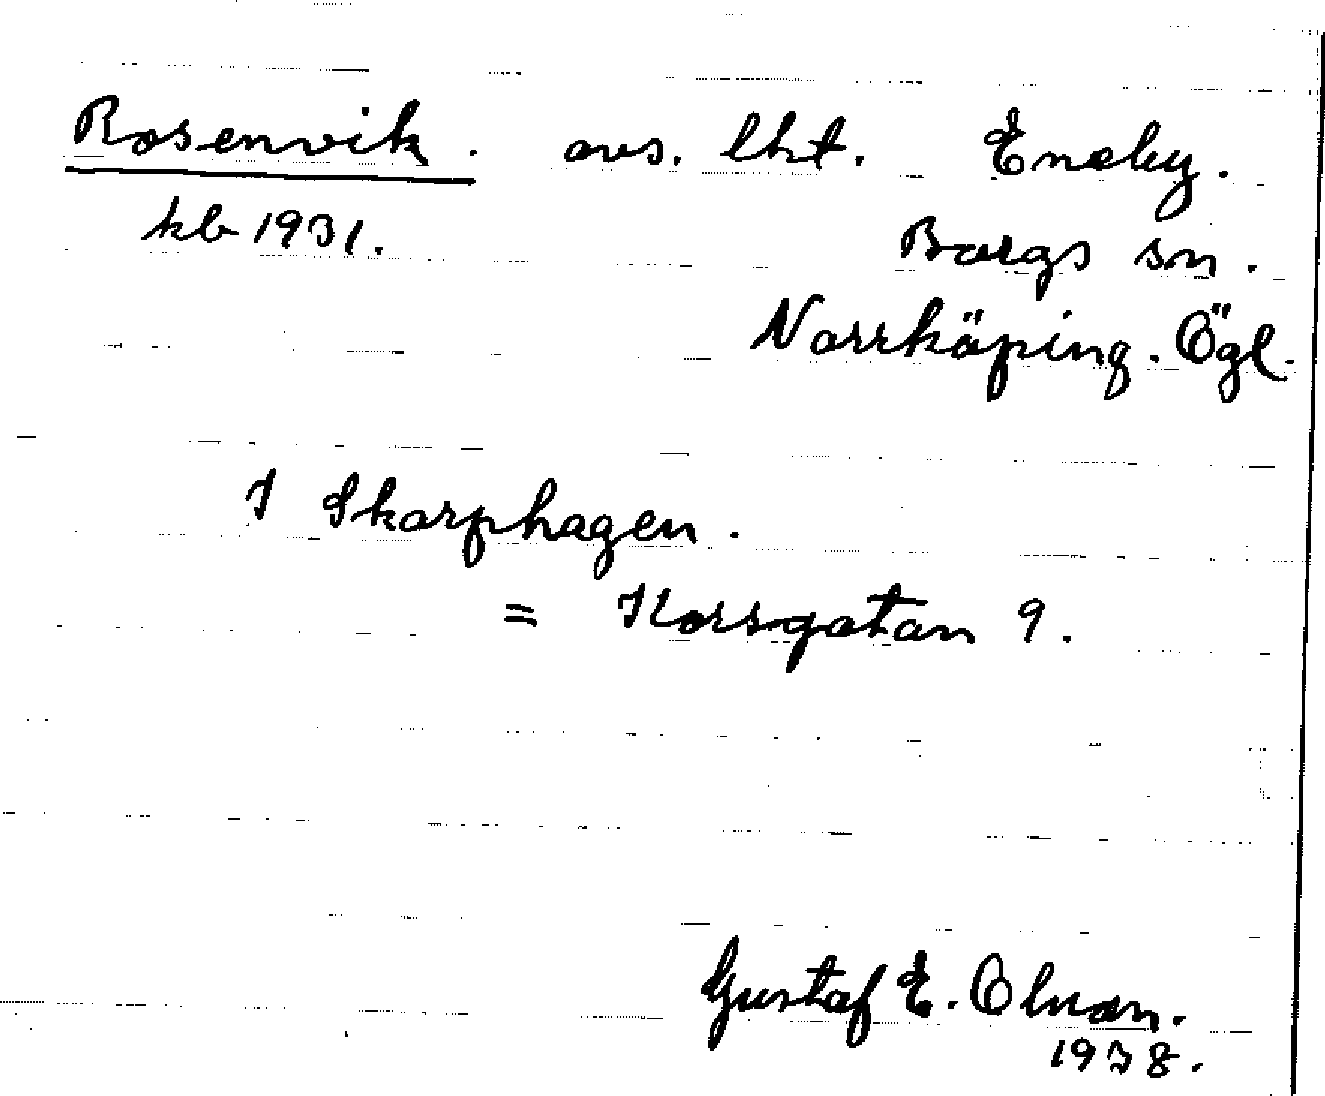 Rosenvik. avs. lht. Eneby.
kb 1931. Borgs sn.
Norrköping. Ögl.
I Skarphagen.
= Korsgatan 9.
Gustaf E. Olnan.
1938.